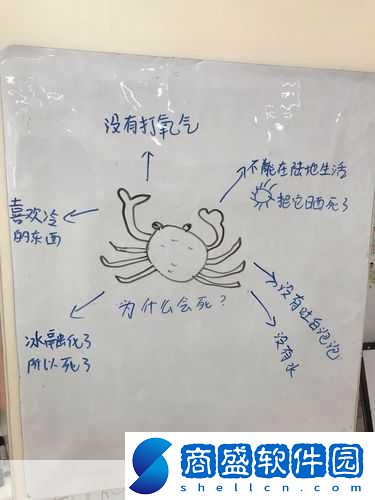 没有打氧气
不能在陆地生活
把它晒死了
喜欢冷
的东西
为什么会死？
没有吐白泡泡
没有水
冰融化了
所以死了
商盛软件园
shellcn.com